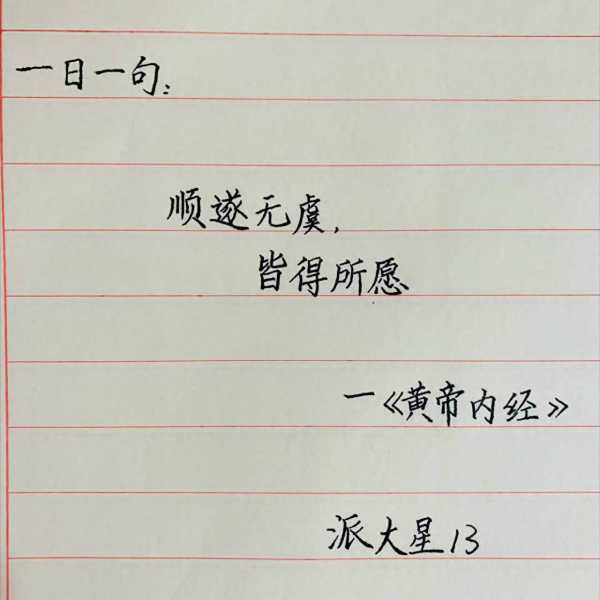 一日一句：
顺遂无虞，
皆得所愿
一《黄帝内经》
派大星13